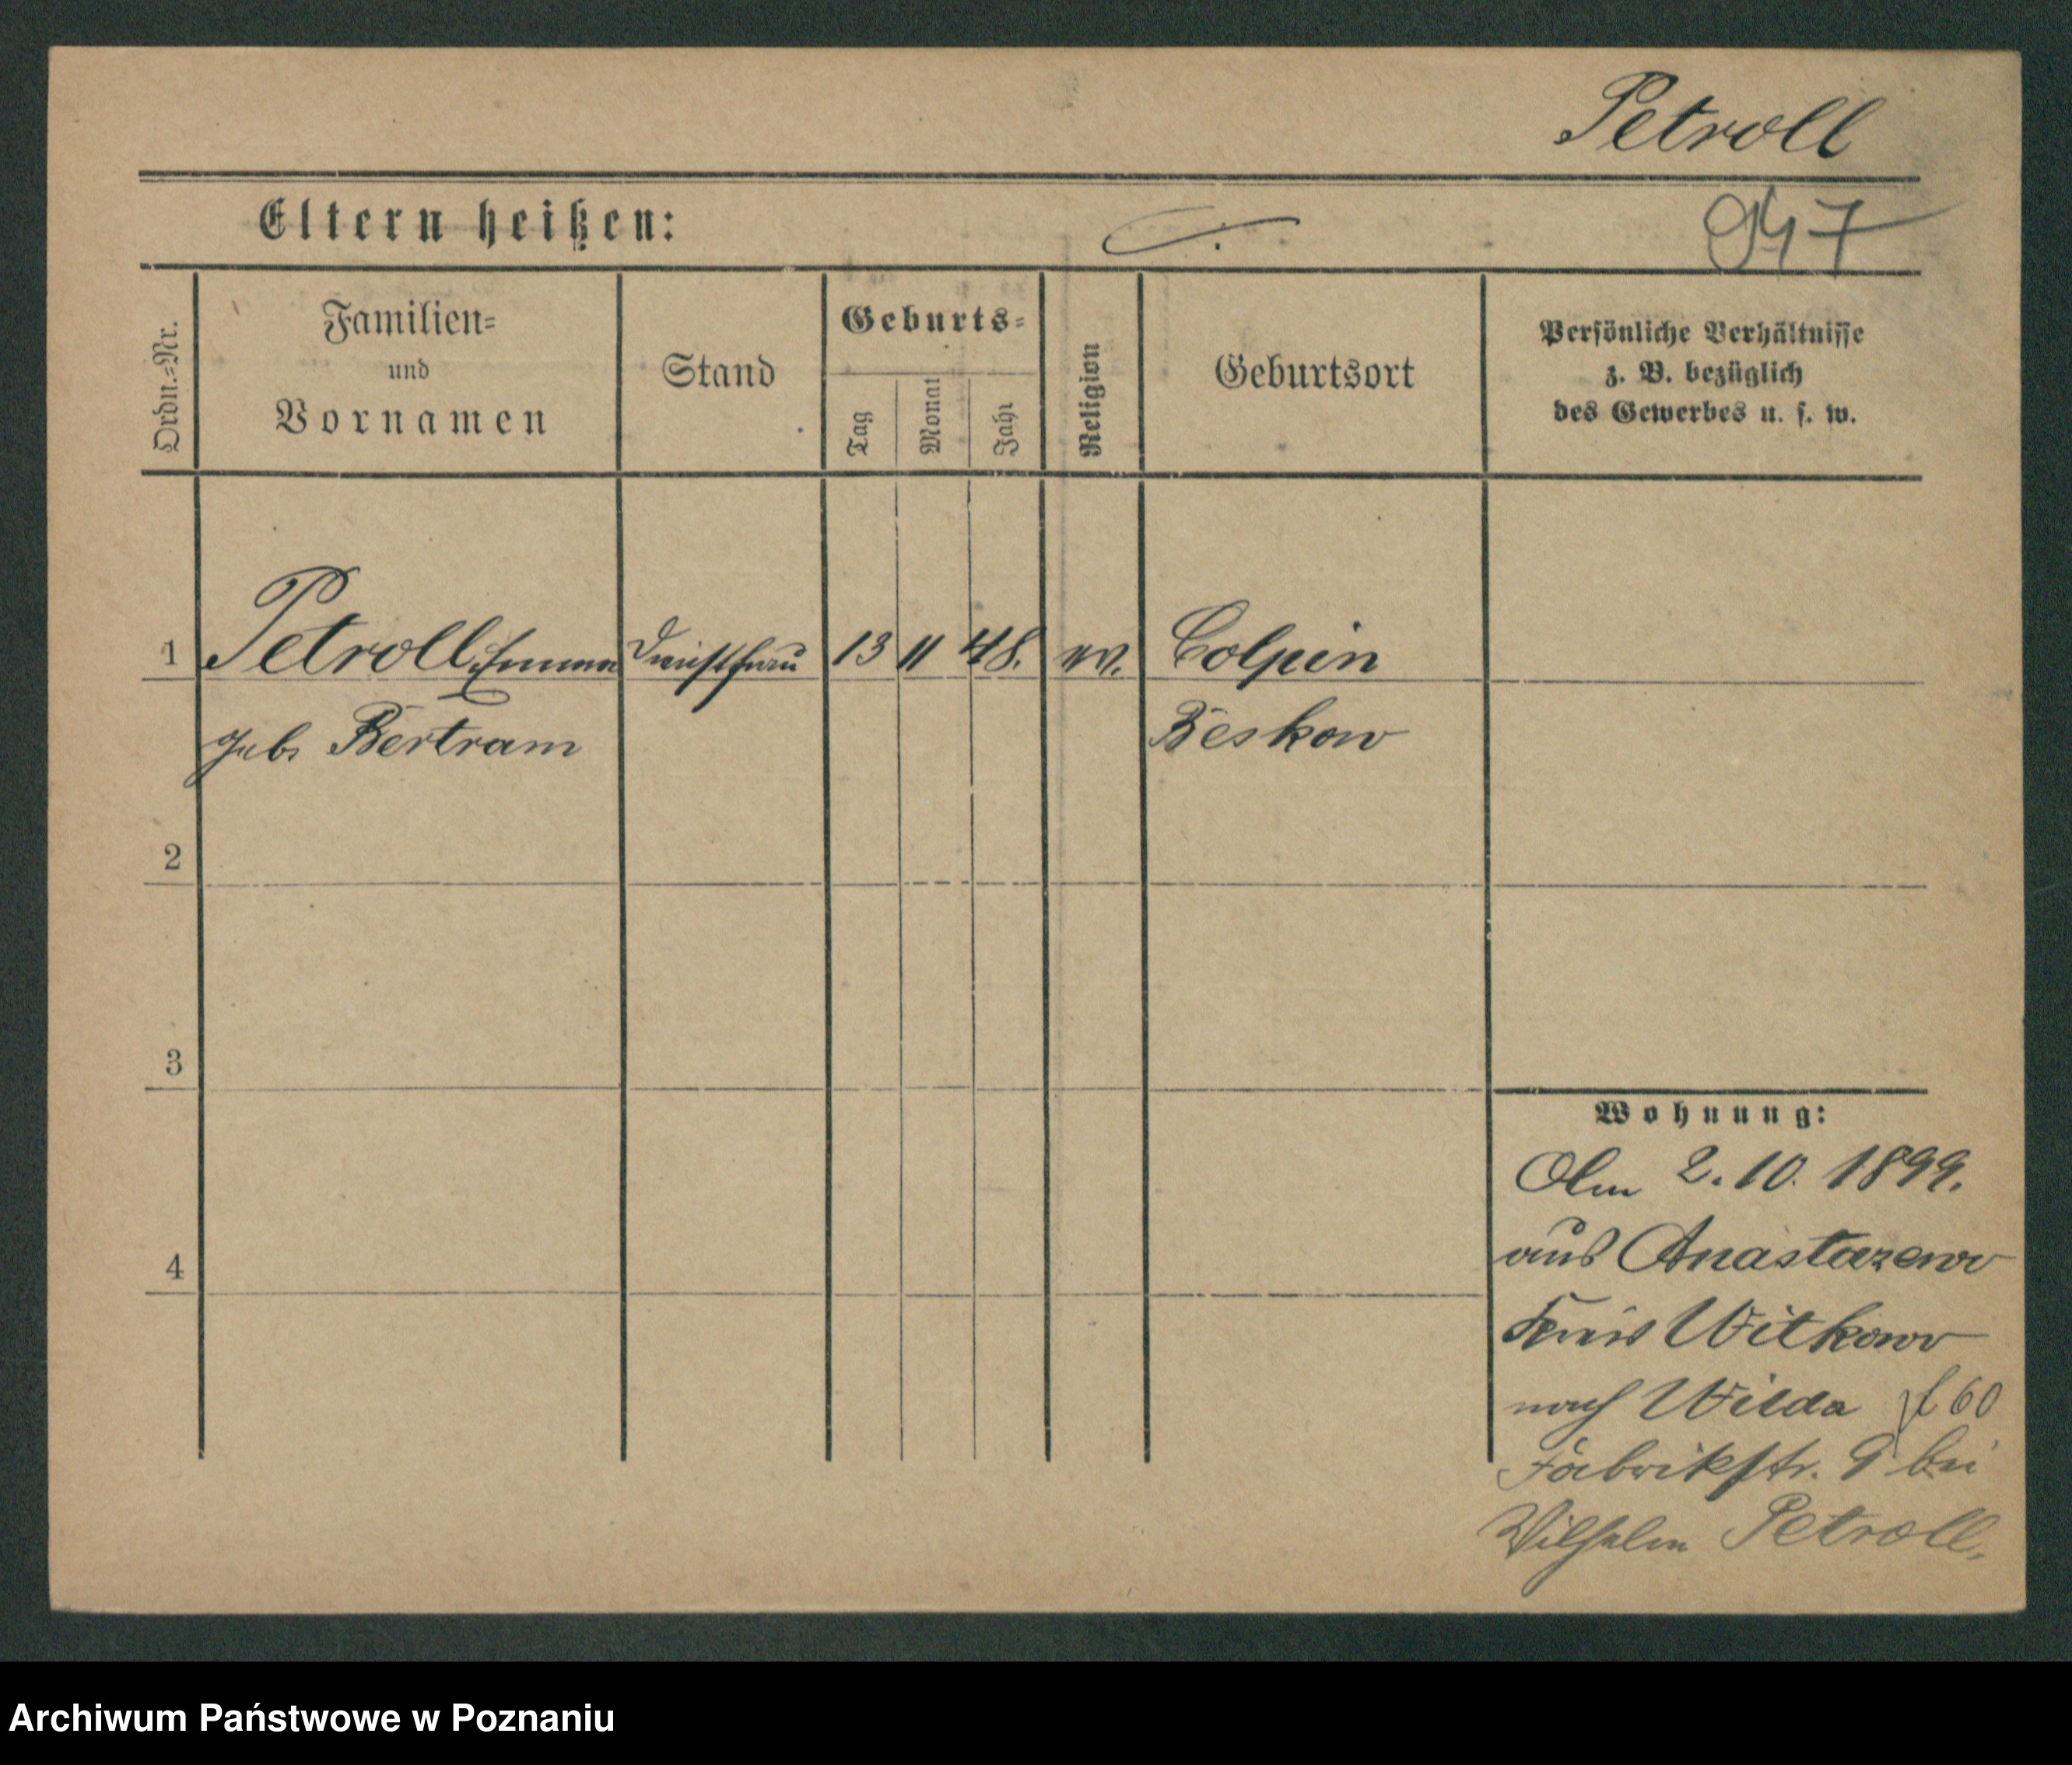 Petroll
Eltern heißen:
947
Ordn.=Nr.
Familien=
und
Vornamen
Stand
Geburts=
Tag
Monat
Jahr
Religion
Geburtsort
Persönliche Verhältnisse
z. B. bezüglich
des Gewerbes u. s. w.
1 Petroll, Emma 13 11 48. ev. Colpin
geb. Bertram Beskow
2
3
4
Wohnung:
Am 2.10.1899.
aus Anastazewo
Kreis Witkowo
nach Wilda 60
Fabrikstr. 9 bei
Wilhelm Petroll.
Archiwum Państwowe w Poznaniu